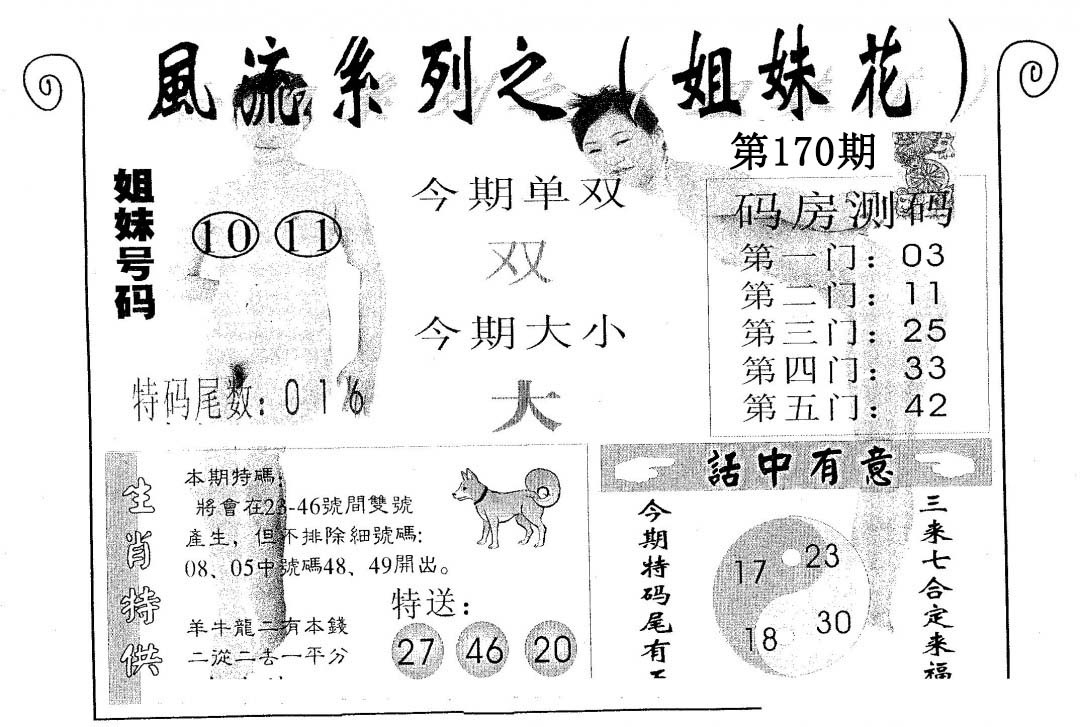 風流系列之（姐妹花）
第170期
姐妹号码
10 11
特码尾数：016
今期单双
双
今期大小
大
码房测码
第一门：03
第二门：11
第三门：25
第四门：33
第五门：42
生肖特供
本期特碼：
將會在23-46號間雙號
產生，但不排除細號碼：
08、05中號碼48、49開出。
羊牛龍二有本錢
二從二去一平分
特送：
27 46 20
話中有意
今期特码尾有
17 23
18 30
三来七合定来福